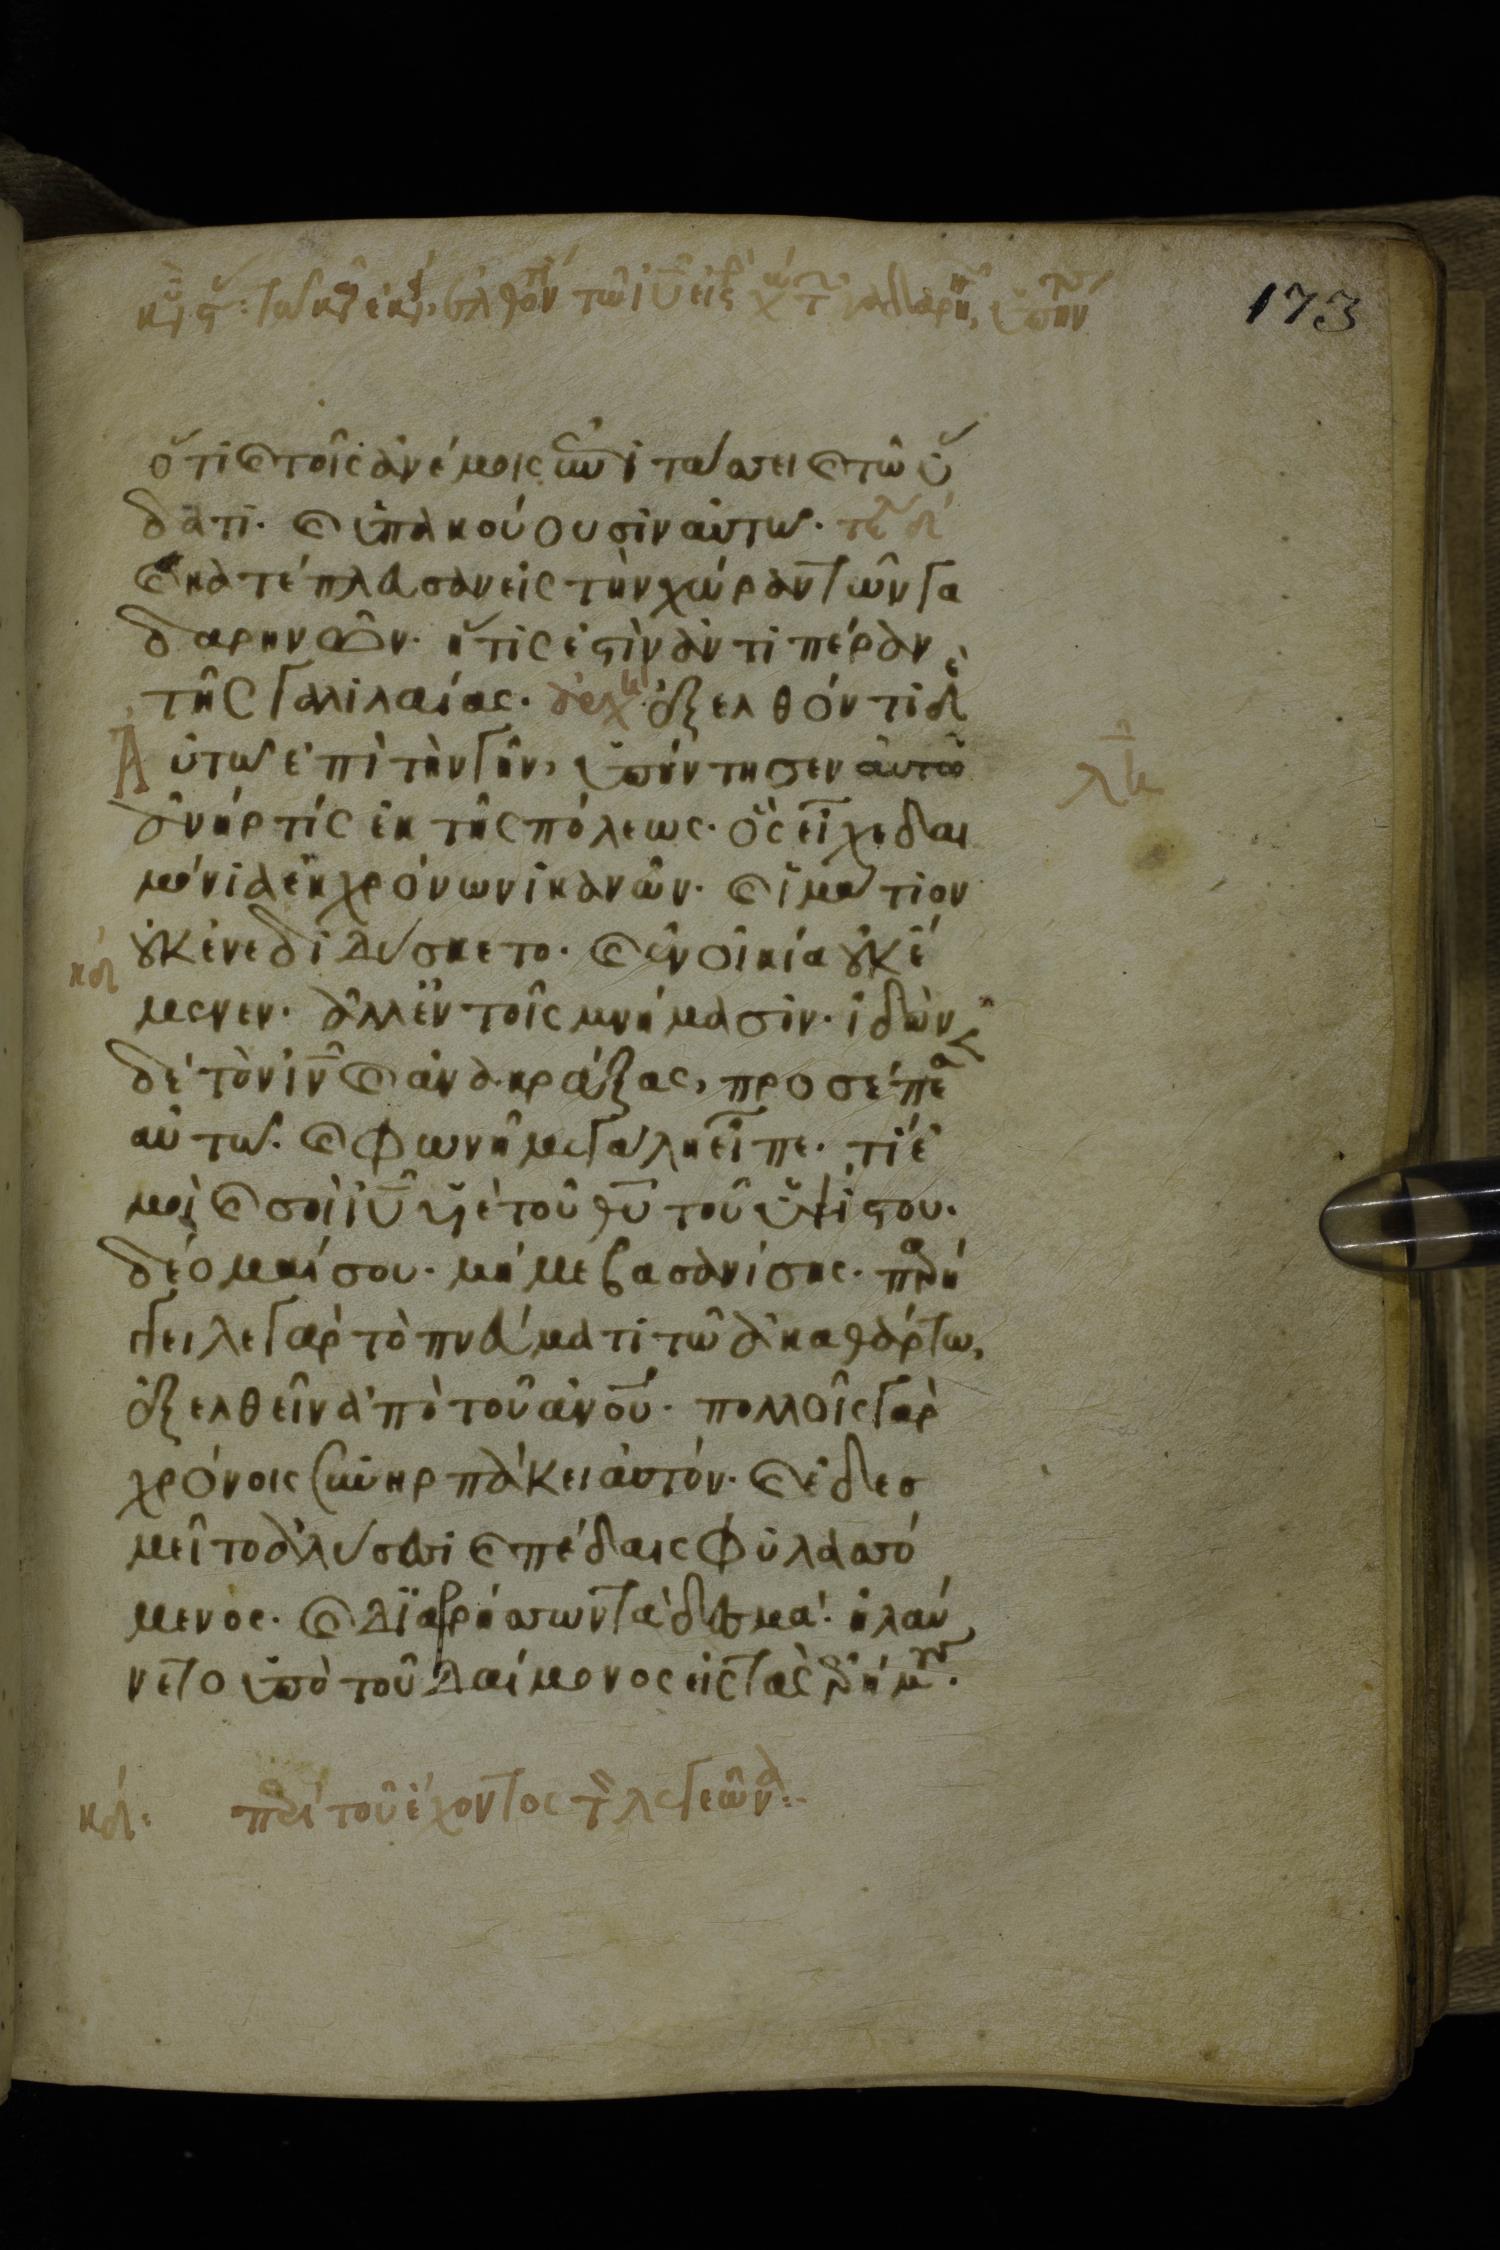 173
ὅτι καὶ τοῖς ἀνέμοις ἐπιτάσσει καὶ τῶ ὕ
δατι. καὶ ὑπακούουσιν αὐτῶ. τε
καὶ κατέπλευσαν εἰς τὴν χώραν τῶν γα
δαρηνῶν. ἥτις ἐστὶν ἀντιπέραν
τῆς γαλιλαίας. ἀρχ ἐξελθόντι δὲ
Αὐτῶ ἐπὶ τὴν γῆν, ὑπήντησεν αὐτῶ
ἀνήρ τίς ἐκ τῆς πόλεως. ὃς εἶχε δαι
μόνια ἐκ χρόνων ἱκανῶν. καὶ ἱμάτιον
οὐκ ἐνεδιδύσκετο. καὶ ἐν οἰκία οὐκ ἔ
μενεν. ἀλλ' ἐν τοῖς μνήμασιν. ἰδὼν
δὲ τὸν ιν καὶ ἀνακράξας, προσέπε
αὐτῶ. καὶ φωνῆ μεγάλη εἶπε. τί ἐ
μοὶ καὶ σοὶ ιυ υἱὲ τοῦ θυ τοῦ ὑψίστου.
δέομαί σου. μή με βασανίσης. παρή
γγειλε γὰρ τὸ πνεύματι τῶ ἀκαθάρτω,
ἐξελθεῖν ἀπὸ τοῦ ανου. πολλοῖς γὰρ
χρόνοις συνηρπάκει αὐτόν. καὶ ἐδεσ
μεῖτο ἁλύσεσι καὶ πέδαις φυλασσό
μενος. καὶ διαρρήσσων τὰ δεσμὰ. ἠλαύ
νετο ὑπὸ τοῦ δαίμονος εἰς τὰς ἐρήμους.
περὶ τοῦ ἔχοντος τὸν λεγεῶνα